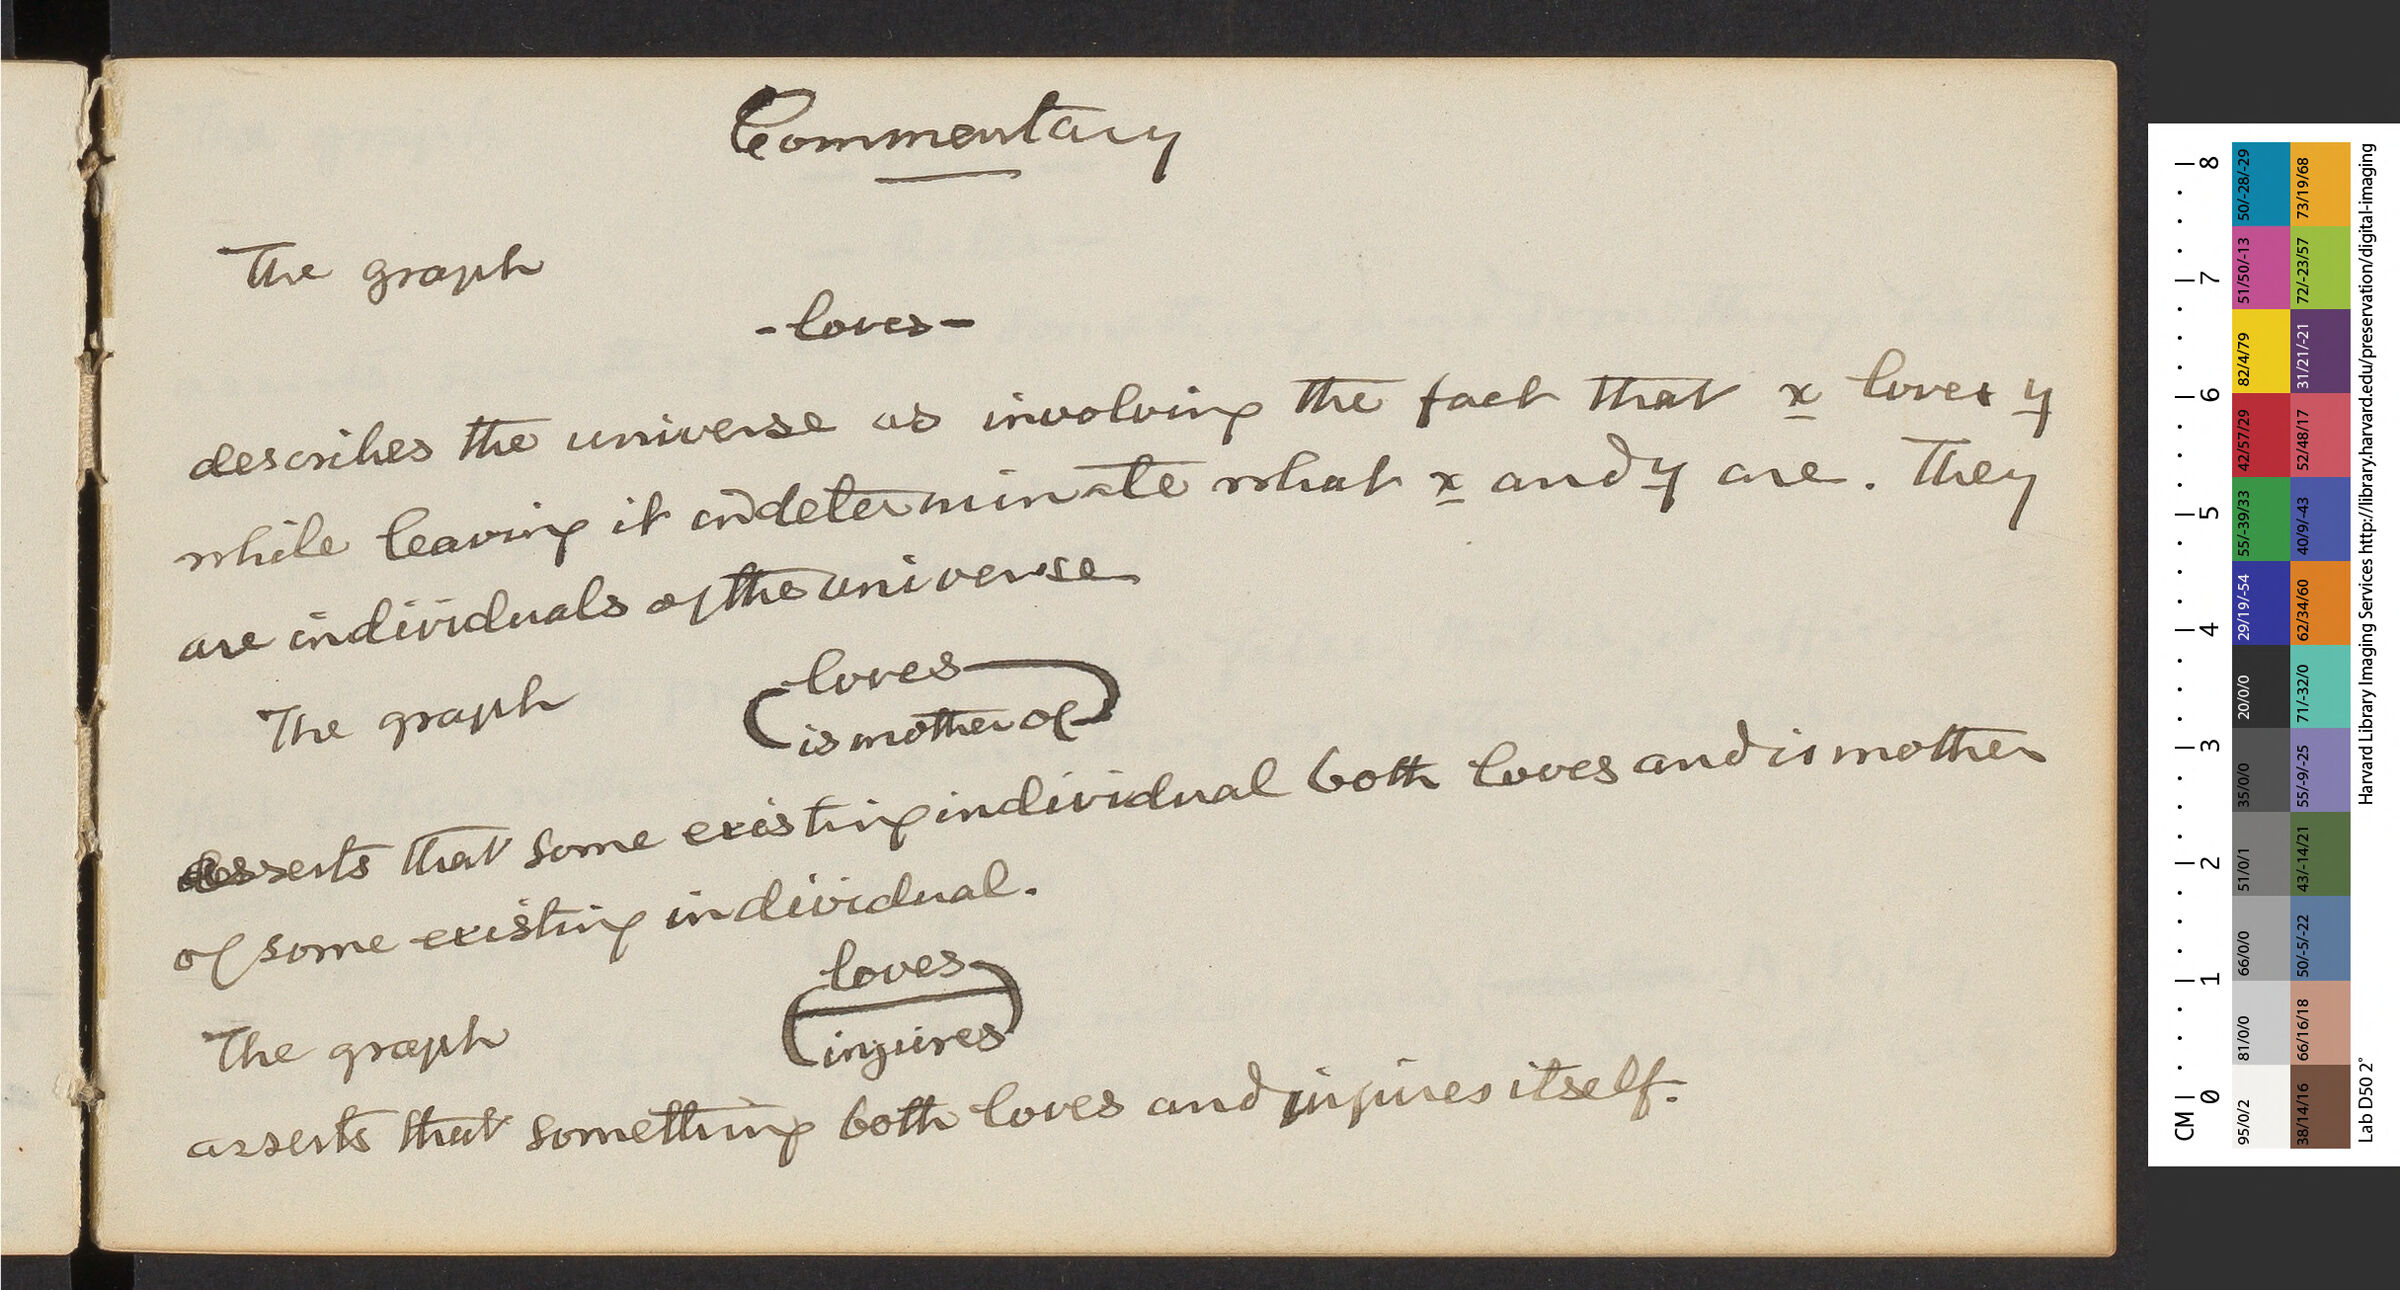 Commentary
The graph
-loves-
describes the universe as involving the fact that x loves y
while leaving it indeterminate what x and y are. They
are individuals of the universe
The graph
loves
is mother of
asserts that some existing individual both loves and is mother
of some existing individual.
The graph
loves
injures
asserts that something both loves and injures itself.
CM 0 1 2 3 4 5 6 7 8
50/-28/-29 51/50/-13 82/4/79 42/57/29 55/-39/33 29/19/-54 20/0/0 35/0/0 51/0/1 66/0/0 81/0/0 95/0/2
73/19/68 72/-23/57 31/21/-21 52/48/17 40/9/-43 62/34/60 71/-32/0 55/-9/-25 43/-14/21 50/-5/-22 66/16/18 38/14/16
Harvard Library Imaging Services http://library.harvard.edu/preservation/digital-imaging
Lab D50 2°